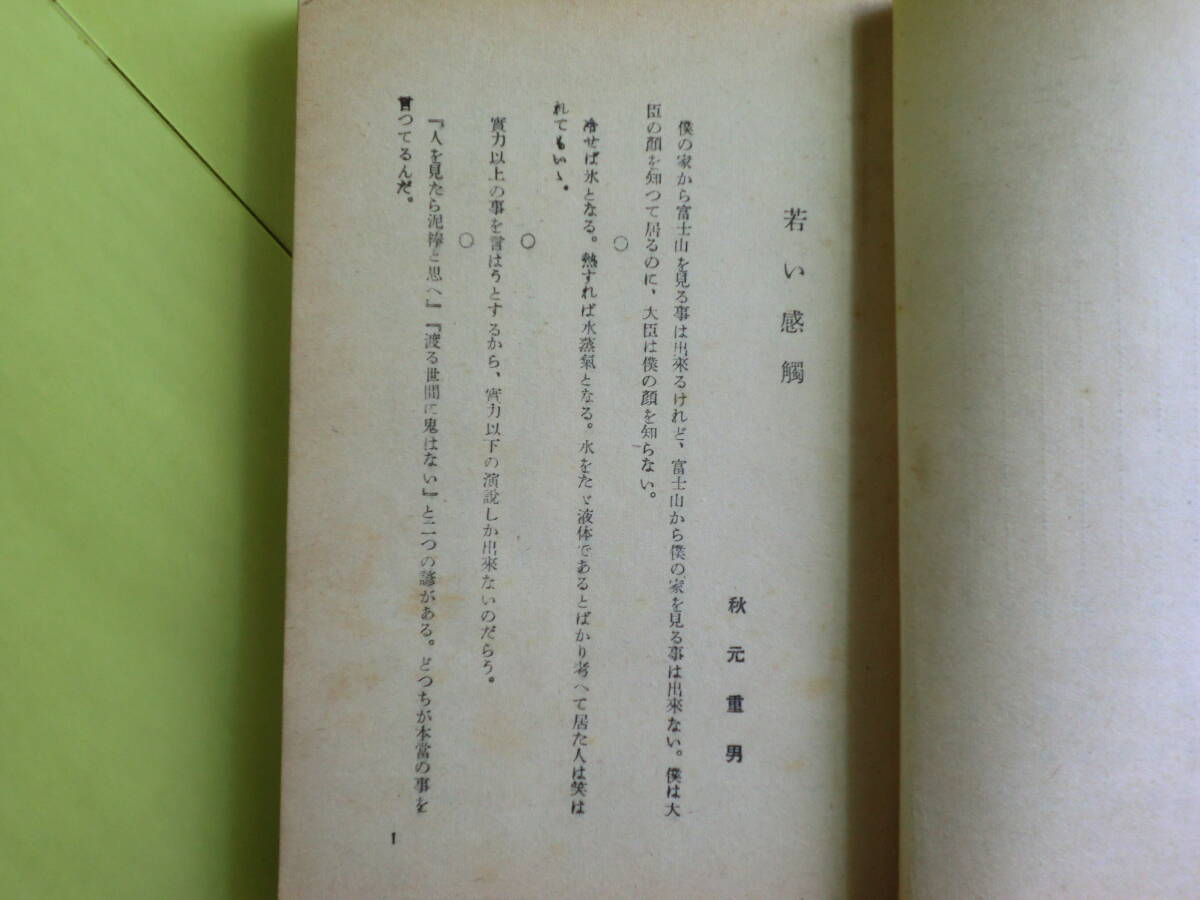 若い感觸
秋元重男
僕の家から富士山を見る事は出來るけれど、富士山から僕の家を見る事は出來ない。僕は大
臣の顔を知つて居るのに、大臣は僕の顔を知らない。
○
冷せば氷となる。熱すれば水蒸氣となる。水をたゞ液体であるとばかり考へて居た人は笑は
れてもいゝ。
○
實力以上の事を言はうとするから、實力以下の演說しか出來ないのだらう。
○
『人を見たら泥棒と思へ』『渡る世間に鬼はない』と二つの諺がある。どつちが本當の事を
言つてるんだ。
1